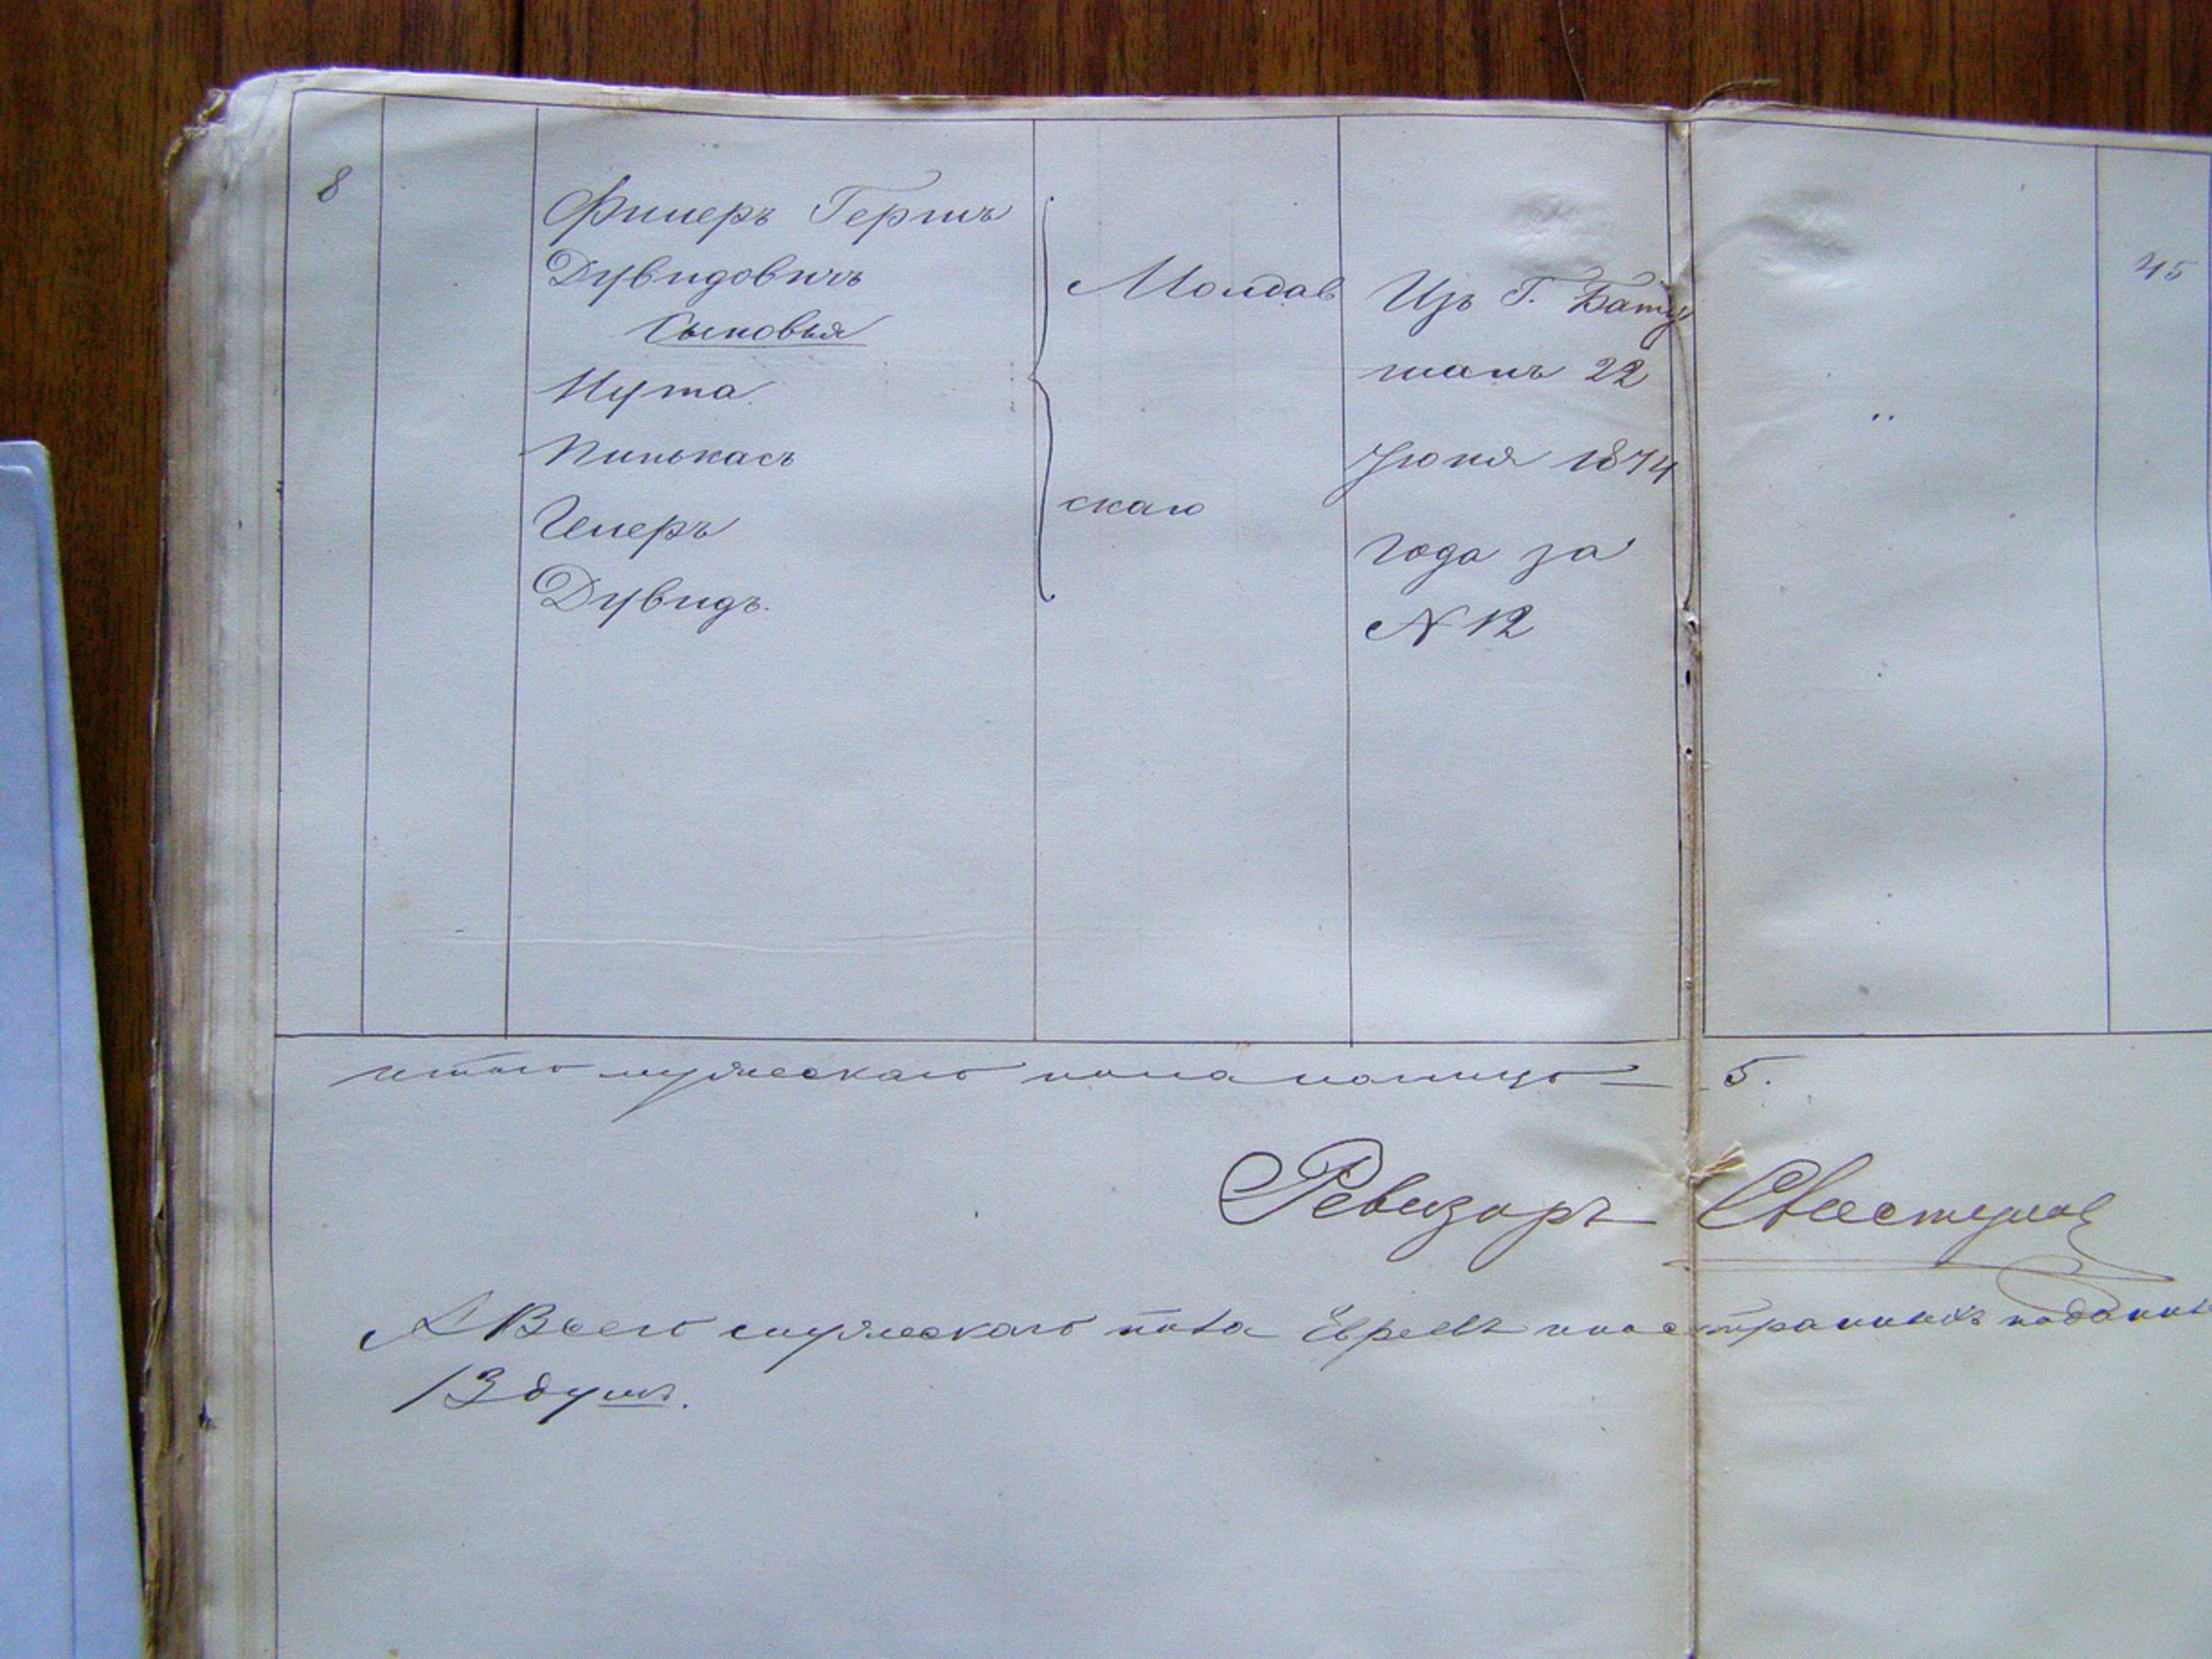 8
Фишеръ Гершъ
Дувидовичъ
Сыновья
Мута
Пинькасъ
Дувидъ.
Молдав
скаго
Изъ Г. Бату
шанъ 22
Іюня 1874
года за
N 12
45
итого мужескаго пола налицо — 5.
Ревизоръ
А Всего мужескаго пола Евреевъ иностранныхъ поданны
13 душъ.